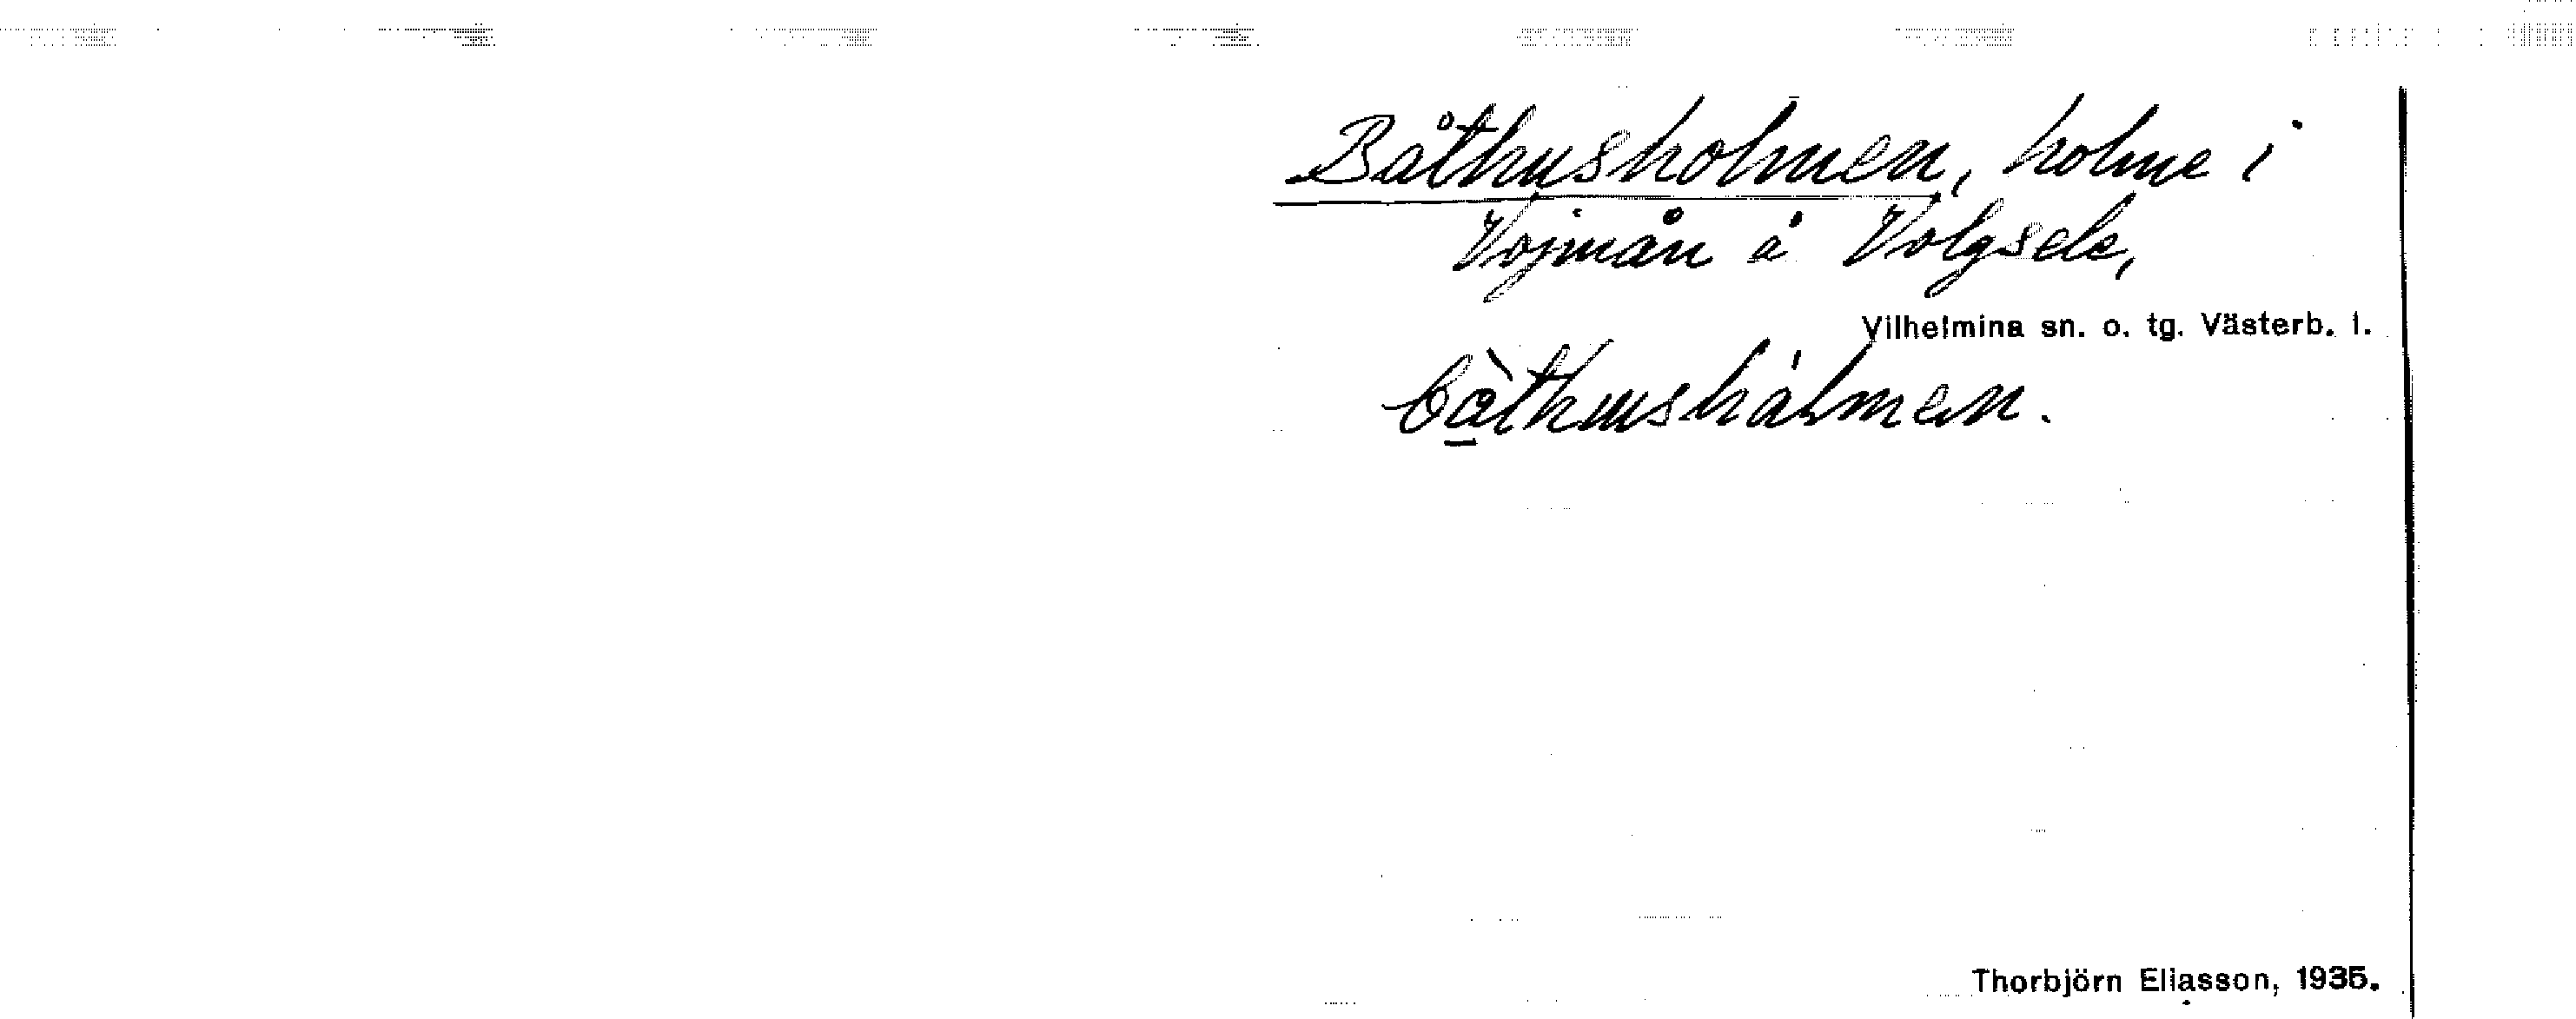 Båthusholmen, holme i
Vojmån å Volgsele,
Vilhelmina sn. o. tg. Västerb. l.
bå̀thushålmen.
Thorbjörn Eliasson, 1935.